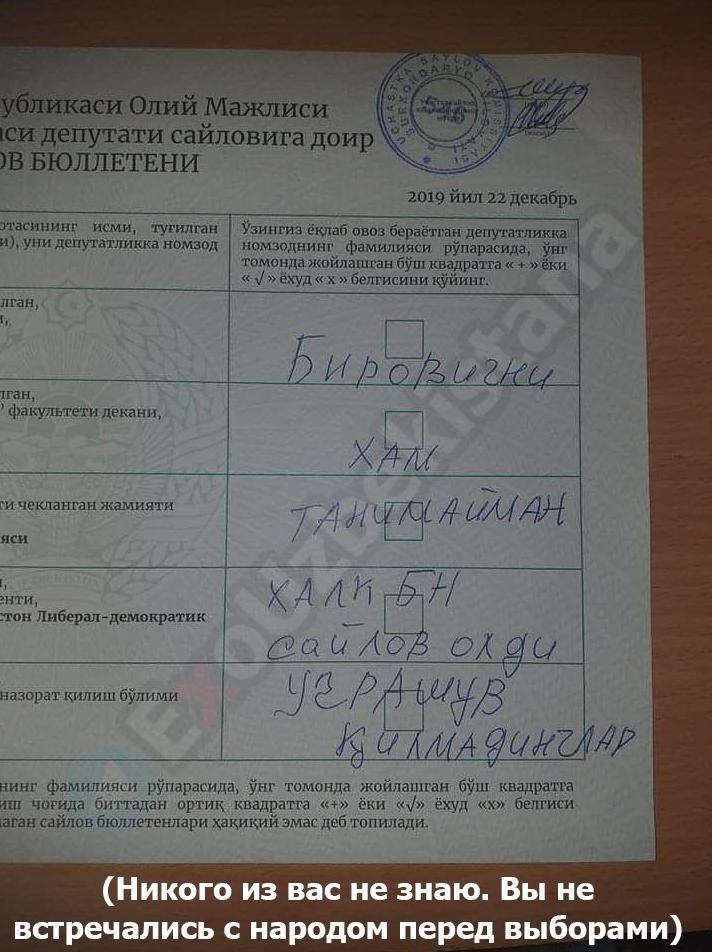 UCHASTKA SAYLOV KOMISSIYASI
SURXONDARYO VILOYATI
публикаси Олий Мажлиси
аси депутати сайловига доир
ОВ БЮЛЛЕТЕНИ
2019 йил 22 декабрь
отасининг исми, туғилган
и), уни депутатликка номзод
Ўзингиз ёқлаб овоз бераётган депутатликка
номзоднинг фамилияси рўпарасида, ўнг
томонда жойлашган бўш квадратга « + » ёки
« √ » ёхуд « x » белгисини қўйинг.
лган,
и,
Бировигни
лган,
факультети декани,
ХАМ
ти чекланган жамияти
яси
ТАНИМАЙМАН
и,
енти,
стон Либерал-демократик
ХАЛК БН
сайлов олди
назорат қилиш бўлими
УЧРАШУВ
ҚИЛМАДИНГЛАР
нинг фамилияси рўпарасида, ўнг томонда жойлашган бўш квадратга
иш чоғида биттадан ортиқ квадратга «+» ёки «√» ёхуд «x» белгиси
маган сайлов бюллетенлари ҳақиқий эмас деб топилади.
ExoUzbekistana
(Никого из вас не знаю. Вы не
встречались с народом перед выборами)